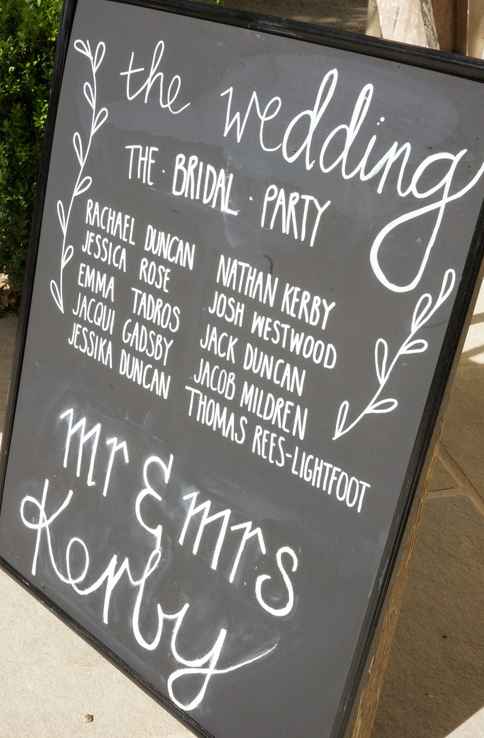 the wedding
THE · BRIDAL · PARTY
RACHAEL DUNCAN
JESSICA ROSE
EMMA TADROS
JACQUI GADSBY
JESSIKA DUNCAN
NATHAN KERBY
JOSH WESTWOOD
JACK DUNCAN
JACOB MILDREN
THOMAS REES-LIGHTFOOT
mr & mrs
Kerby